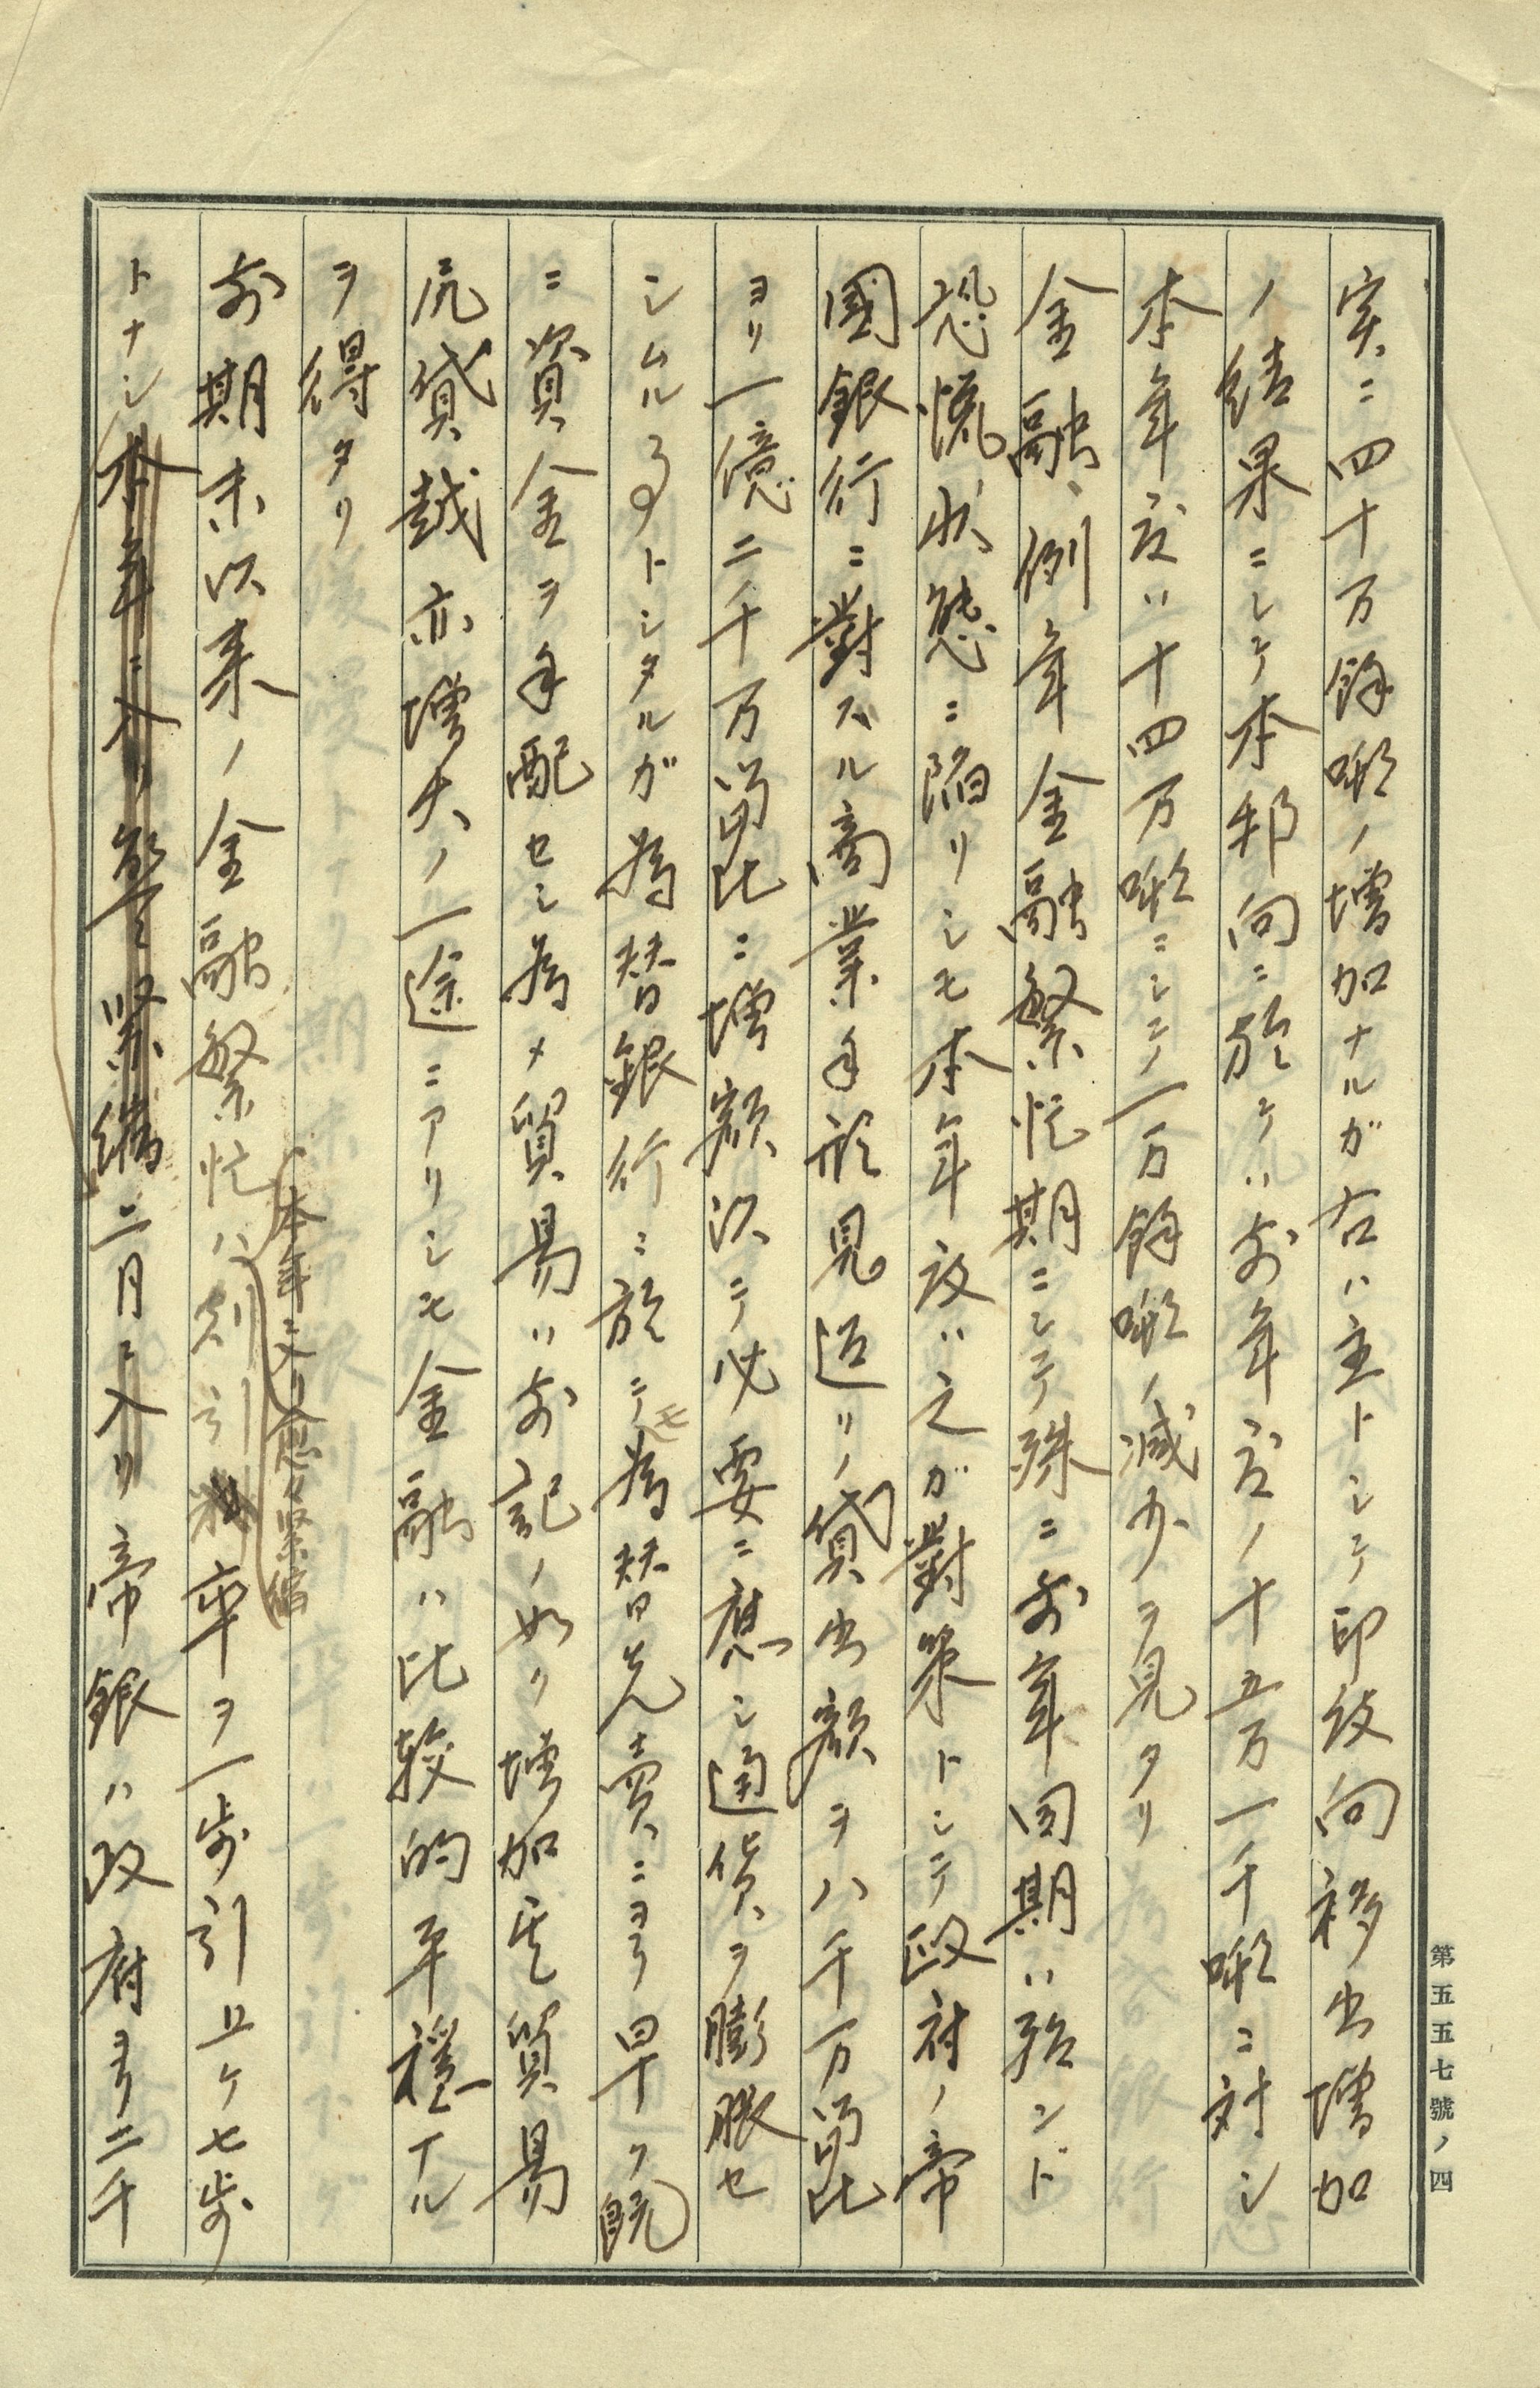 実ニ四十万餘噸ノ増加ナルガ右ハ主トシテ印紋向移出増加
ノ結果ニシテ本邦向ニ於テハ前年度ノ十五万一千噸ニ対シ
本年度ハ十四万噸ニシテ一万餘噸ノ減少ヲ見タリ
金融、例年金融繁忙期ニシテ殊ニ前年同期ハ殆ンド
恐慌状態ニ陥リシモ本年度ハ之ガ對策トシテ政府ノ帝
國銀行ニ對スル商業手形見返リノ貸出額ヲ八千万留比
ヨリ一億二千万留比ニ増額以テ必要ニ應シ通貨ヲ膨脹セ
シムルヿトシタルガ為替銀行ニ於テモ為替先賣ニヨリ早ク既
ニ資金ヲ手配セシ為メ貿易ハ前記ノ如ク増加シ貿易
尻貸越亦増大ノ一途ニアリシモ金融ハ比較的平穏ナル
ヲ得タリ
本年ニ入リ愈々緊縮
前期末以来ノ金融繁忙ハ割引率ヲ一歩引上ケ七歩
トナシ本年ニ入リ緊縮二月ニ入リ帝銀ハ政府ヨリ二千
第五五七號ノ四